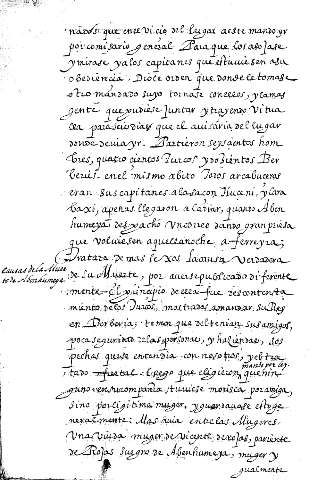 nados: que en servicio del lugar aeste mando yr
por comisario general Para que los alojase
y mirase y a los capitanes que estuviesen a su
obediencia. Diole orden que donde le tomase
otro mandado suyo tornase con ellos, y la mas
gente que pudiese juntar y trayendo vitua
lla para seis dias que el avisaria del lugar
donde devia yr. Partieron seyscientos hom
bres, quatro cientos Turcos y dozientos Ber
veris en el mismo abito todos arcabuzeros
eran sus capitanes a la sazon Huceni, y Cara
baxi, apenas llegaron a Cadiar, quando Aben
humeya despacho un correo dando gran priesa
que volviesen aquella noche a ferreyra;
Causas de la Muer
te de Abenhumeya
Tratase de mas lexos la causa verdadera
de su Muerte, por aver se publicado diferente
mente. El principio de ella fue descontenta
miento de los Turcos, mostrados a mandar su Rey
en Berberia: temor que del tenian sus amigos,
poca seguridad de las personas, y haziendas, sos
pechas que se entendia con nosotros, y el tra
tado luego que eligieron que nin
guno en su compañia tuviese morisca por amiga,
sino por ligitima muger, y guardavase este ge
neralmente: Mas avia entre las Mugeres
una viuda muger de Vicente de Rojas, pariente
de Rojas suegro de Abenhumeya, muger y
gualmente